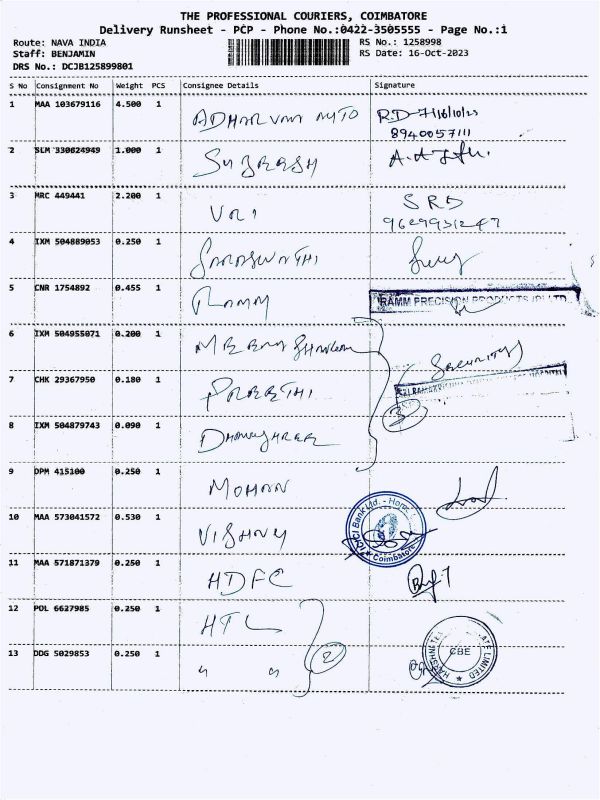 THE PROFESSIONAL COURIERS, COIMBATORE
Delivery Runsheet - PCP - Phone No.:0422-3505555 - Page No.:1
Route: NAVA INDIA
Staff: BENJAMIN
DRS No.: DCJB125899801
RS No.: 1258998
RS Date: 16-Oct-2023
S No Consignment No Weight PCS Consignee Details Signature
1 MAA 103679116 4.500 1 ADHARVAA AUTO R.D 16/10/23
8940057111
2 SLM 330624949 1.000 1
3 MRC 449441 2.200 1 SRD
9629931247
4 IXM 504889053 0.250 1 SARASWATHI
5 CNR 1754892 0.455 1 RAMM RAMM PRECISION PRODUCTS (P) LTD
6 IXM 504955071 0.200 1 MEENA Security
7 CHK 29367950 0.180 1 PREETHI 3
8 IXM 504879743 0.090 1
9 DPM 415100 0.250 1 MOHAN
10 MAA 573041572 0.530 1 VISHNU ICICI Bank Ltd. Coimbatore
11 MAA 571871379 0.250 1 HDFC
12 POL 6627985 0.250 1 HTL 2
13 DDG 5029853 0.250 1 " " CBE LIMITED